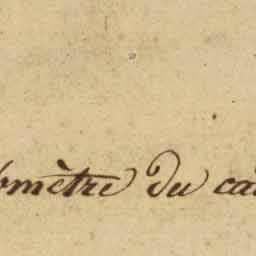 omètre du ca